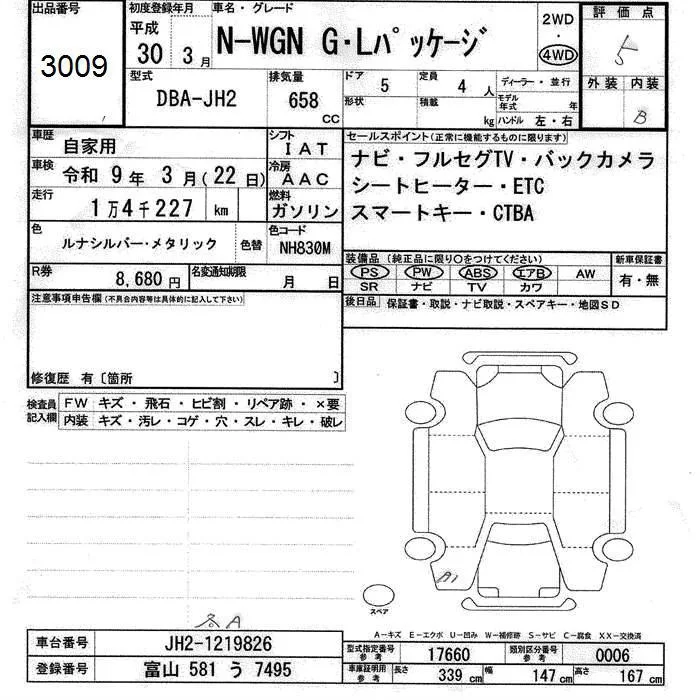 出品番号 初度登録年月 車名・グレード 評価点
3009 平成 30 3月 N-WGN G・Lパッケージ 2WD・4WD 5
型式 排気量 ドア 5 定員 4人 ディーラー・並行 外装 内装
DBA-JH2 658 CC 形状 積載 kg モデル年式 年 B
ハンドル 左・右
車歴 自家用 シフト IAT セールスポイント(正常に機能するものに限ります)
車検 令和 9年 3月(22日) 冷房 AAC ナビ・フルセグTV・バックカメラ
走行 1万4千227 km 燃料 ガソリン シートヒーター・ETC
スマートキー・CTBA
色 ルナシルバー・メタリック 色替 色コード NH830M
装備品(純正品に限り〇をつけてください) 新車保証書
PS PW ABS エアB AW 有・無
SR ナビ TV カワ
R券 8,680円 名変通知期限 月 日
後日品 保証書・取説・ナビ取説・スペアキー・地図SD
注意事項申告欄(不具合内容等は具体的に記入して下さい)
修復歴 有〔箇所 〕
検査員記入欄 FW キズ・飛石・ヒビ割・リペア跡・×要
内装 キズ・汚レ・コゲ・穴・スレ・キレ・破レ
A1
スペア
各A
A-キズ E-エクボ U-凹み W-補修跡 S-サビ C-腐食 XX-交換済
車台番号 JH2-1219826 型式指定番号 参考 17660 類別区分番号 参考 0006
登録番号 富山 581 う 7495 車庫証明用 参考 長さ 339 cm 幅 147 cm 高さ 167 cm